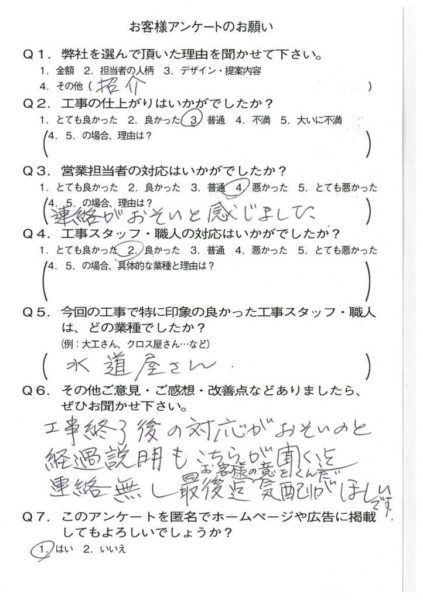 お客様アンケートのお願い
Q1. 弊社を選んで頂いた理由を聞かせて下さい。
1. 金額 2. 担当者の人柄 3. デザイン・提案内容
4. その他( 紹介 )
Q2. 工事の仕上がりはいかがでしたか？
1. とても良かった 2. 良かった 3. 普通 4. 不満 5. 大いに不満
(4. 5. の場合、理由は？ )
Q3. 営業担当者の対応はいかがでしたか？
1. とても良かった 2. 良かった 3. 普通 4. 悪かった 5. とても悪かった
(4. 5. の場合、理由は？
連絡がおそいと感じました )
Q4. 工事スタッフ・職人の対応はいかがでしたか？
1. とても良かった 2. 良かった 3. 普通 4. 悪かった 5. とても悪かった
(4. 5. の場合、具体的な業種と理由は？ )
Q5. 今回の工事で特に印象の良かった工事スタッフ・職人
は、どの業種でしたか？
(例：大工さん、クロス屋さん…など)
( 水道屋さん. )
Q6. その他ご意見・ご感想・改善点などありましたら、
ぜひお聞かせ下さい。
工事終了後の対応がおそいのと
経過説明もこちらが聞くまで
連絡無し 最後迄 お客様の意をくんだ 気配がほしいです.
Q7. このアンケートを匿名でホームページや広告に掲載
してもよろしいでしょうか？
1. はい 2. いいえ